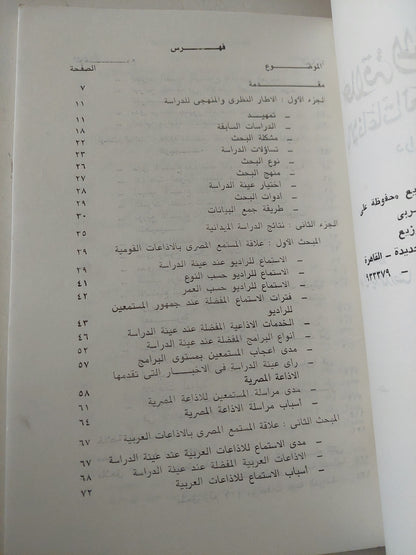 فهرس
الموضوع الصفحة
مقدمة ٧
الجزء الأول : الاطار النظرى والمنهجى للدراسة ١١
– تمهيد ١١
– الدراسات السابقة ١٨
– مشكلة البحث ٢٢
– تساؤلات الدراسة ٢٣
– نوع البحث ٢٦
– منهج البحث ٢٧
– اختيار عينة الدراسة ٢٨
– أدوات البحث ٢٩
– طريقة جمع البيانات ٣٠
الجزء الثانى : نتائج الدراسة الميدانية ٣٥
المبحث الأول : علاقة المستمع المصرى بالاذاعات القومية ٣٩
– الاستماع للراديو عند عينة الدراسة ٣٩
– الاستماع للراديو حسب النوع ٤١
– الاستماع للراديو حسب العمر ٤٢
– فترات الاستماع المفضلة عند جمهور المستمعين
للراديو ٤٣
– الخدمات الاذاعية المفضلة عند عينة الدراسة ٤٦
– أنواع البرامج المفضلة عند عينة الدراسة ٥٢
– مدى اعجاب المستمعين بمستوى البرامج ٥٧
– رأى عينة الدراسة فى الاخبار التى تقدمها
الاذاعة المصرية ٥٨
– مدى مراسلة المستمعين للاذاعة المصرية ٦١
– أسباب مراسلة الاذاعة المصرية ٦٤
المبحث الثانى : علاقة المستمع المصرى بالاذاعات العربية ٦٧
– مدى الاستماع للاذاعات العربية عند عينة الدراسة ٦٧
– الاذاعات العربية المفضلة عند عينة الدراسة ٦٨
– أسباب الاستماع للاذاعات العربية ٧٢
محفوظة على
ربى
زيع
جديدة – القاهرة
– ٩٣٣٣٧٩